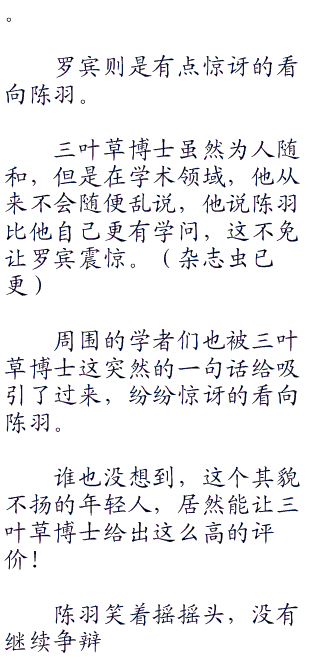 。
罗宾则是有点惊讶的看
向陈羽。
三叶草博士虽然为人随
和，但是在学术领域，他从
来不会随便乱说，他说陈羽
比他自己更有学问，这不免
让罗宾震惊。（杂志虫已
更）
周围的学者们也被三叶
草博士这突然的一句话给吸
引了过来，纷纷惊讶的看向
陈羽。
谁也没想到，这个其貌
不扬的年轻人，居然能让三
叶草博士给出这么高的评
价！
陈羽笑着摇摇头，没有
继续争辩